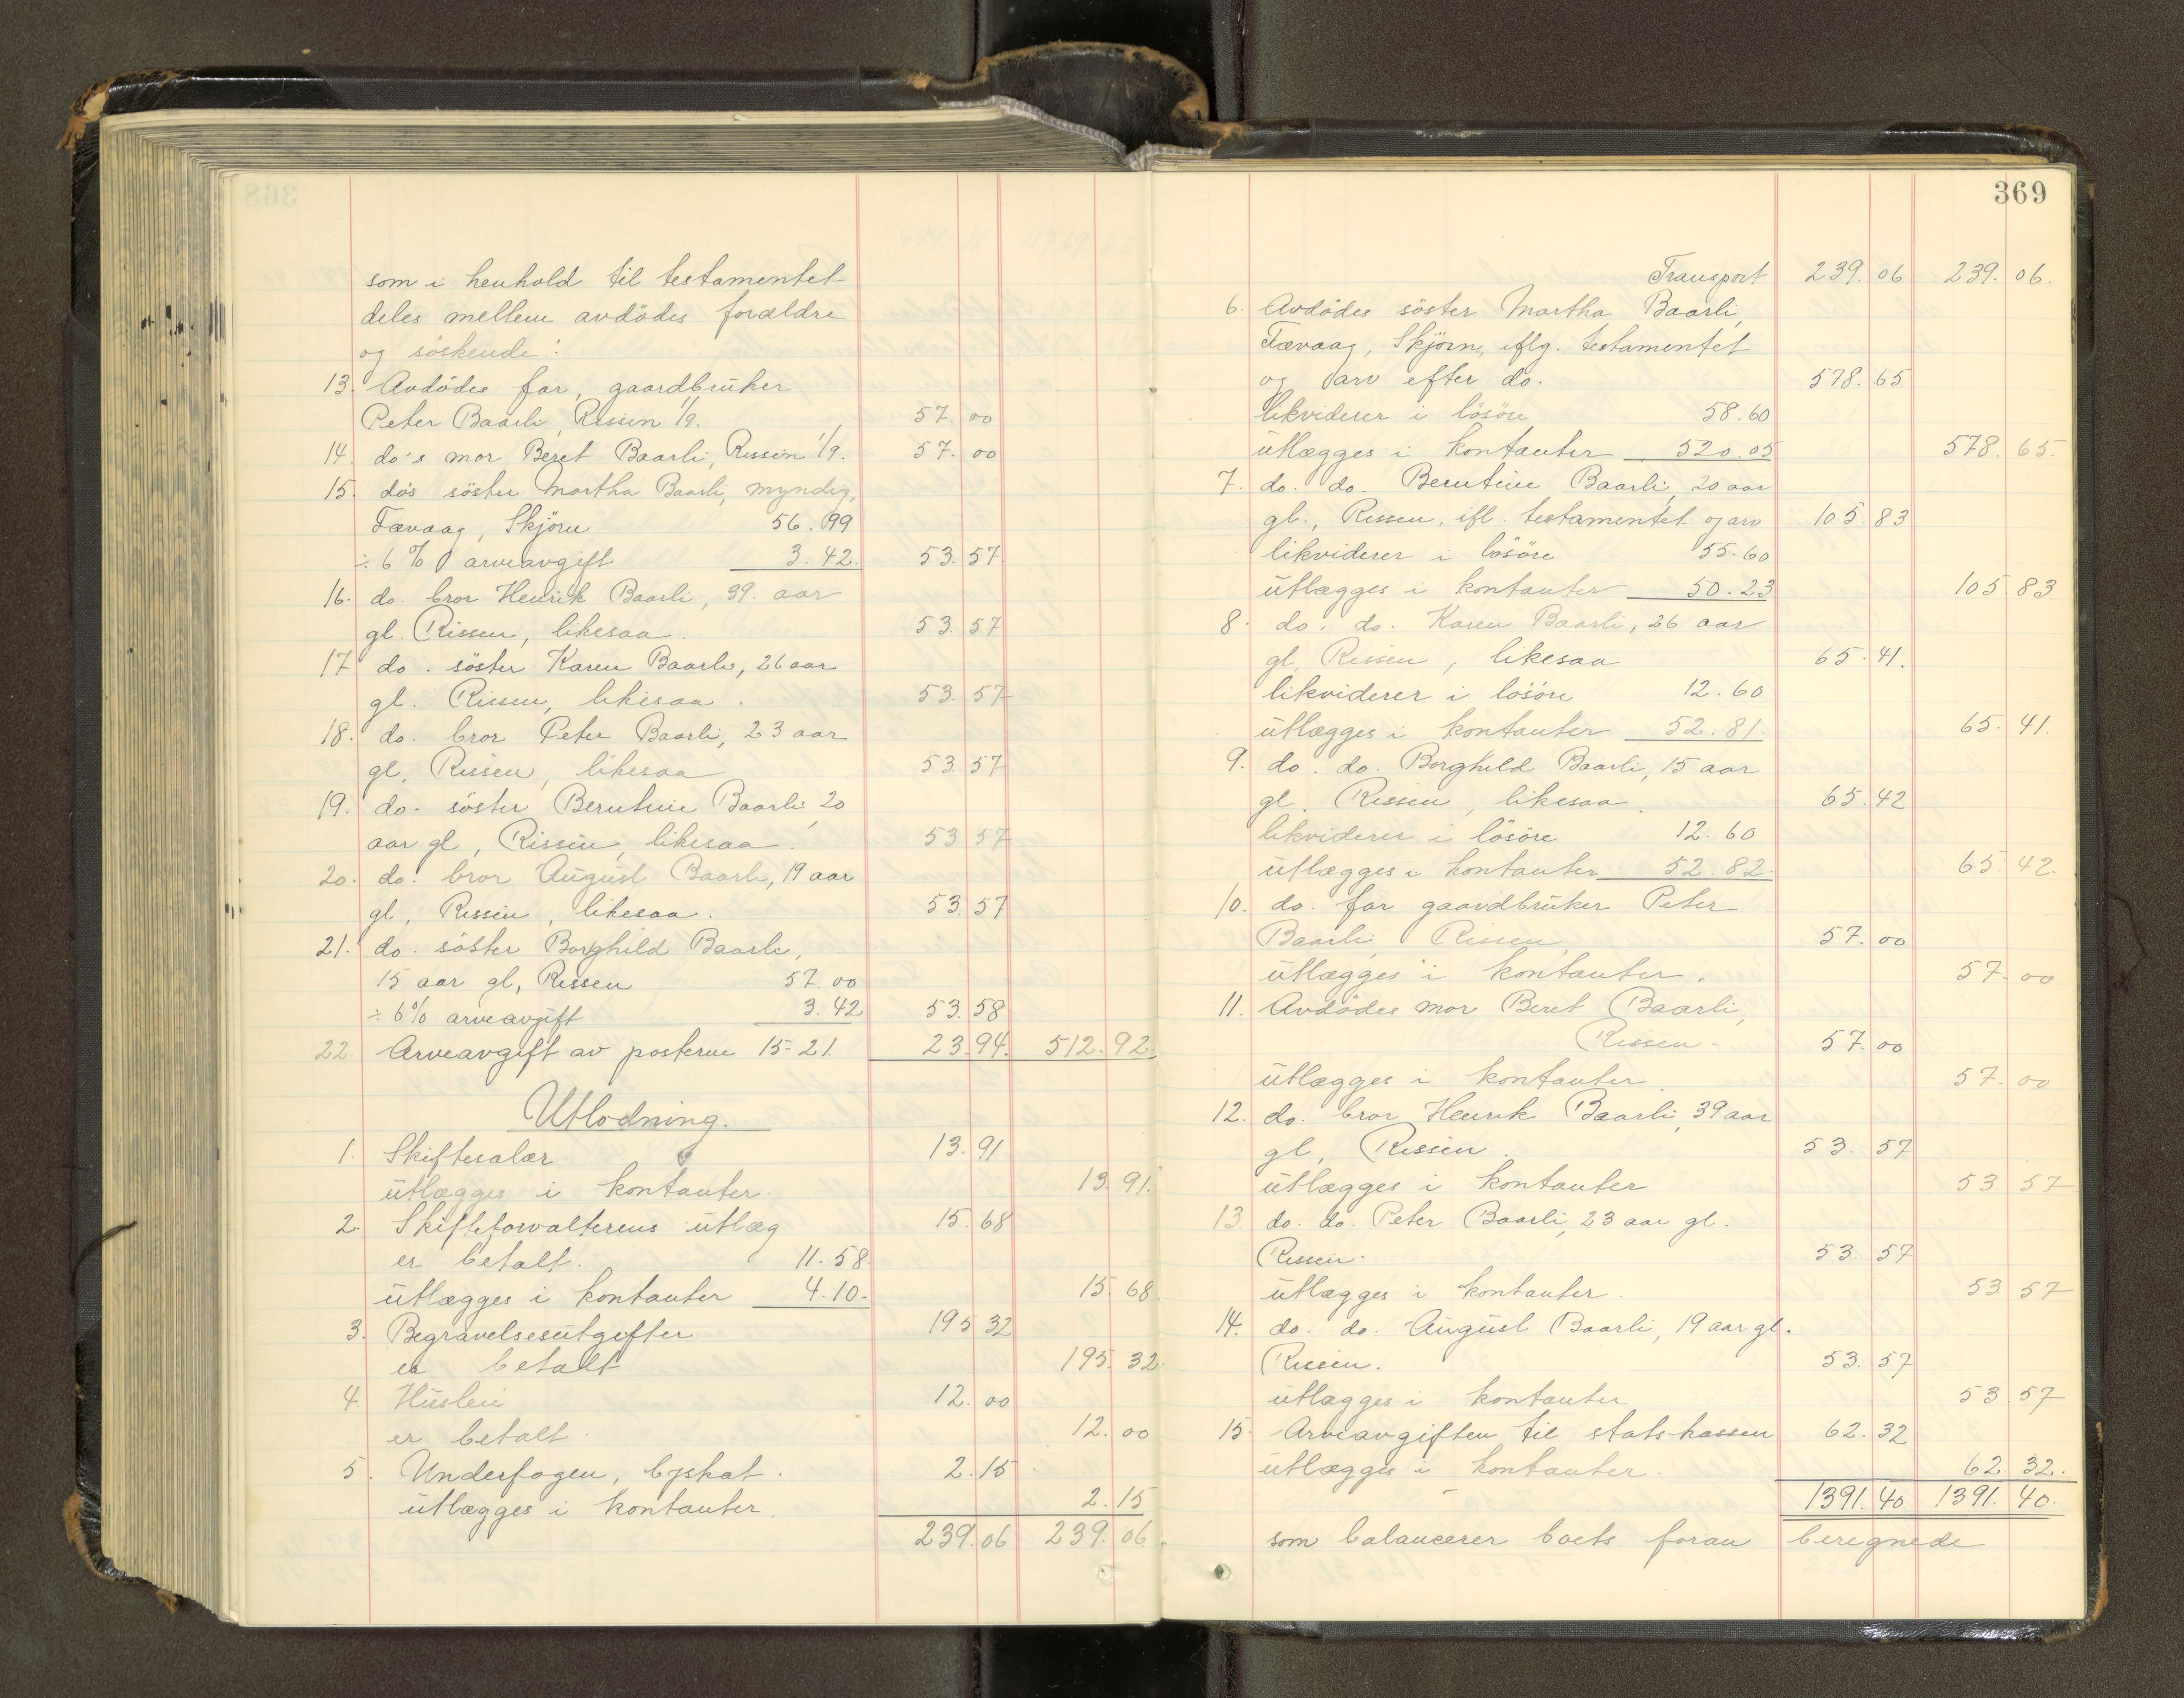 som i henhold til testamentet
deles mellem avdödes forældre
og söskende:
13. Avdödes far, gaardbruker
Peter Baarli, Rissen 1/9. 57.00
14. do's mor Beret Baarli, Rissen 1/9. 57.00
15. do's söster Martha Baarli, myndig,
Fævaag, Skjörn 56.99
÷ 6% arveavgift 3.42. 53.57
16. do. bror Henrik Baarli, 39. aar
gl. Rissen, likesaa. 53.57
17 do. söster Karen Baarli, 26 aar
gl. Rissen, likesaa. 53.57
18. do. bror Peter Baarli, 23 aar
gl, Rissen, likesaa 53.57
19. do. söster Berntine Baarli, 20
aar gl, Rissen, likesaa. 53 57
20. do. bror August Baarli, 19 aar
gl, Rissen, likesaa. 53 57
21. do. söster Borghild Baarli,
15 aar gl, Rissen 57.00
÷ 6% arveavgift 3.42 53.58
22 Arveavgift av posterne 15-21. 23.94. 512.92.
Utlodning.
1. Skiftesalær 13.91
utlægges i kontanter. 13.91.
2. Skifteforvalterens utlæg 15.68
er betalt. 11.58.
utlægges i kontanter 4.10. 15.68
3. Begravelsesutgifter 195 32
er betalt 195.32.
4. Husleie 12.00
er betalt. 12.00
5. Underfogen, byskat. 2.15
utlægges i kontanter. 2.15
239.06 239.06.
369
Transport 239.06 239.06.
6. Avdödes söster Martha Baarli,
Fævaag, Skjörn, iflg. testamentet
og arv efter do. 578.65
likviderer i lösöre 58.60
utlægges i kontanter 520.05 578.65.
7. do. do. Berntine Baarli, 20 aar
gl., Rissen, ifl. testamentet og arv 105.83
likviderer i lösöre 55.60
utlægges i kontanter 50.23 105.83
8. do. do. Karen Baarli, 26 aar
gl, Rissen, likesaa 65.41.
likviderer i lösöre 12.60
utlægges i kontanter 52.81. 65.41.
9. do. do. Borghild Baarli, 15 aar
gl. Rissen, likesaa. 65.42
likviderer i lösöre 12.60
utlægges i kontanter 52.82. 65.42.
10. do. far gaardbruker Peter
Baarli, Rissen, 57.00
utlægges i kontanter. 57.00
11. Avdödes mor Beret Baarli,
Rissen. 57.00
utlægges i kontanter. 57.00
12. do. bror Henrik Baarli, 39 aar
gl, Rissen. 53.57
utlægges i kontanter 53 57
13 do. do. Peter Baarli, 23 aar gl.
Rissen. 53.57
utlægges i kontanter. 53 57
14. do. do. August Baarli, 19 aar gl.
Rissen. 53.57
utlægges i kontanter 53 57
15. Arveavgiften til statskassen 62.32
utlægges i kontanter. 62.32.
1391.40 1391.40.
som balancerer boets foran beregnede